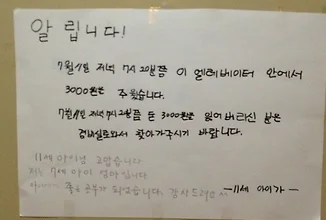 알립니다!
7월 4일 저녁 7시 20분쯤 이 엘레베이터 안에서
3000원은 주웠습니다.
7월 4일 저녁 7시 20분쯤 돈 3000원을 잃어버리신 분은
경비실로와서 찾아가주시기 바랍니다.
—11세 아이가—
11세 아이님 고맙습니다
저는 7세 아이 엄마입니다
좋은 공부가 되었습니다. 감사드려요